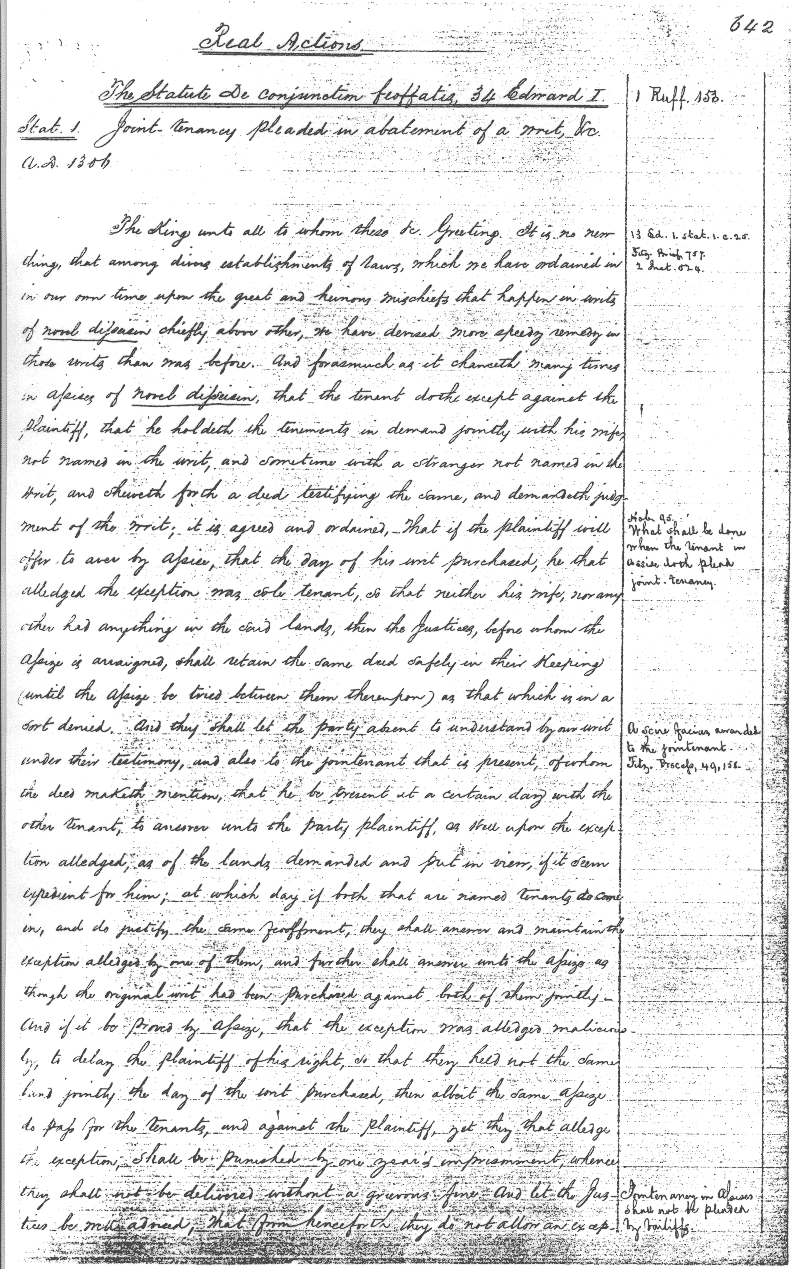 642
Real Actions
The Statute De conjunction feoffatis, 34 Edward I.
1 Ruff. 153.
Stat. 1. Joint-tenancy pleaded in abatement of a writ, &c.
A.D. 1306
The King unto all to whom these &c. Greeting. It is no new
thing, that among divers establishments of laws, which we have ordained in
in our own time upon the great and heinous mischiefs that happen in writs
of novel disseisin chiefly above other, we have devised more speedy remedy in
those writs than was before. And forasmuch as it chanceth many times
in assises of novel disseisin, that the tenant doth except against the
plaintiff, that he holdeth the tenements in demand jointly with his wife
not named in the writ, and sometime with a stranger not named in the
writ, and sheweth forth a deed testifying the same, and demandeth judg-
ment of the writ; it is agreed and ordained, That if the plaintiff will
offer to aver by assise, that the day of his writ purchased, he that
alledged the exception was sole tenant, so that neither his wife, nor any
other had anything in the said lands, then the Justices, before whom the
Assize is arraigned, shall retain the same deed safely in their Keeping
(until the assize be tried between them thereupon) as that which is in a
sort denied. And they shall let the party absent to understand by our writ
under their testimony, and also to the jointenant that is present, of whom
the deed maketh mention, that he be present at a certain day with the
other tenant, to answer unto the party plaintiff, as well upon the excep-
tion alledged, as of the lands demanded and put in view, if it seem
expedient for him; at which day if both that are named tenants do come
in, and do justify the same feoffment, they shall answer and maintain the
exception alledged by one of them, and further shall answer unto the assize as
though the original writ had been purchased against both of them jointly.-
And if it be proved by assize, that the exception was alledged malicious-
ly, to delay the plaintiff of his right, so that they held not the same
land jointly the day of the writ purchased, then albeit the same assize
do pass for the tenants, and against the plaintiff, yet they that alledge
the exception, shall be punished by one year's imprisonment, whence
they shall not be delivered without a grievous fine. And let the Jus-
tices be advised, that from henceforth they do not allow an excep-
13 Ed. 1. stat. 1. c. 25.
Fitz. Brief, 757.
2 Inst. 524.
Hob. 95.
What shall be done
when the tenant in
assise doth plead
joint-tenancy.
A scire facias awarded
to the jointenant.
Fitz. Process, 49, 156.
Jointenancy in Assises
shall not be pleaded
by bailiffs.